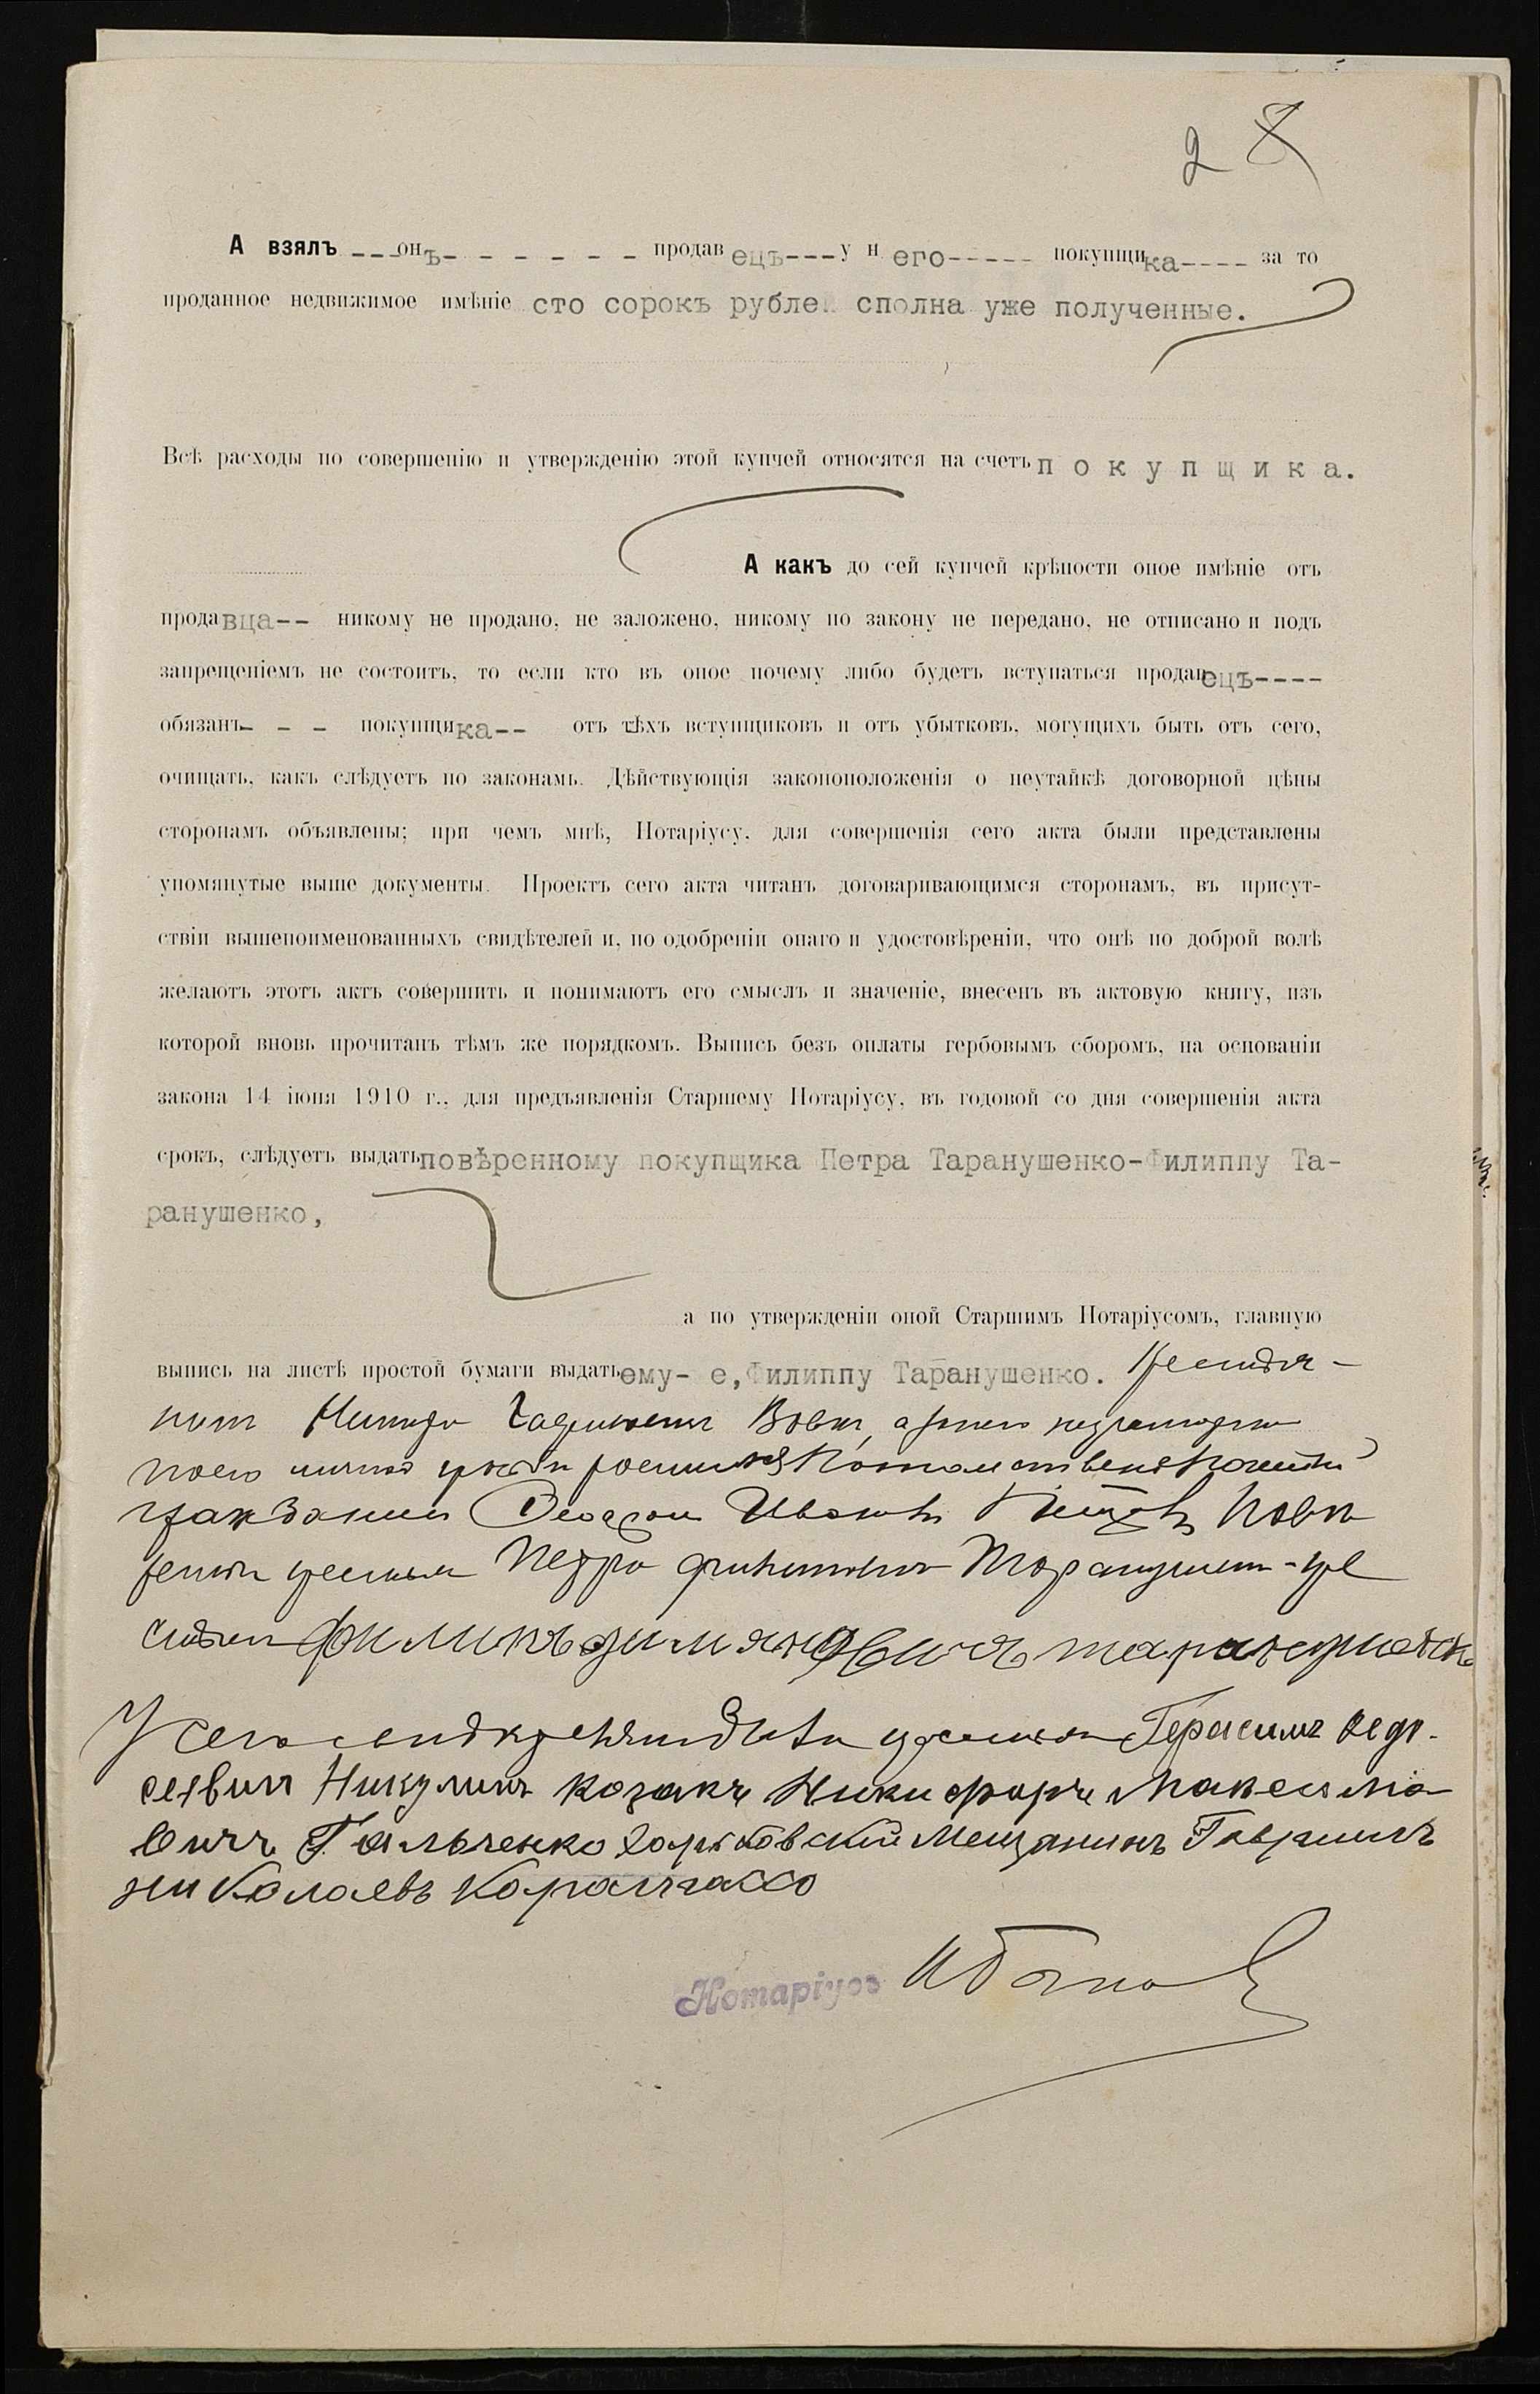 28
А взялъ ---онъ- - - - - - - продавецъ---у него----- покупщика---- за то
проданное недвижимое имѣніе сто сорокъ рублей сполна уже полученные.
Всѣ расходы по совершенію и утвержденію этой купчей относятся на счетъ покупщика.
А какъ до сей купчей крѣпости оное имѣніе отъ
продавца-- никому не продано, не заложено, никому по закону не передано, не отписано и подъ
запрещеніемъ не состоитъ, то если кто въ оное почему либо будетъ вступаться продавецъ----
обязанъ- - - покупщика-- отъ тѣхъ вступщиковъ и отъ убытковъ, могущихъ быть отъ сего,
очищать, какъ слѣдуетъ по законамъ. Дѣйствующія законоположенія о неутайкѣ договорной цѣны
сторонамъ объявлены; при чемъ мнѣ, Нотаріусу, для совершенія сего акта были представлены
упомянутые выше документы. Проектъ сего акта читанъ договаривающимся сторонамъ, въ присут-
ствіи вышепоименованныхъ свидѣтелей и, по одобреніи онаго и удостовѣреніи, что онѣ по доброй волѣ
желаютъ этотъ актъ совершить и понимаютъ его смыслъ и значеніе, внесенъ въ актовую книгу, изъ
которой вновь прочитанъ тѣмъ же порядкомъ. Выпись безъ оплаты гербовымъ сборомъ, на основаніи
закона 14 іюня 1910 г., для предъявленія Старшему Нотаріусу, въ годовой со дня совершенія акта
срокъ, слѣдуетъ выдать повѣренному покупщика Петра Таранушенко-Филиппу Та-
ранушенко,
а по утвержденіи оной Старшимъ Нотаріусомъ, главную
выпись на листѣ простой бумаги выдать ему- е, Филиппу Таранушенко. Крестья-
Вовкъ, а
Потомственный почетный
гражданинъ Ивановъ Повѣ
ренный Петра Филиппова Таранушенко -кре
стьянинъ Филипъ таранушенко
У сего Герасимъ Федо-
сеевичъ Никулинъ козакъ Никифоръ Максимо
вичъ Гальченко Харьковскій Мещанинъ Гавріилъ
николаевъ
Нотаріусъ